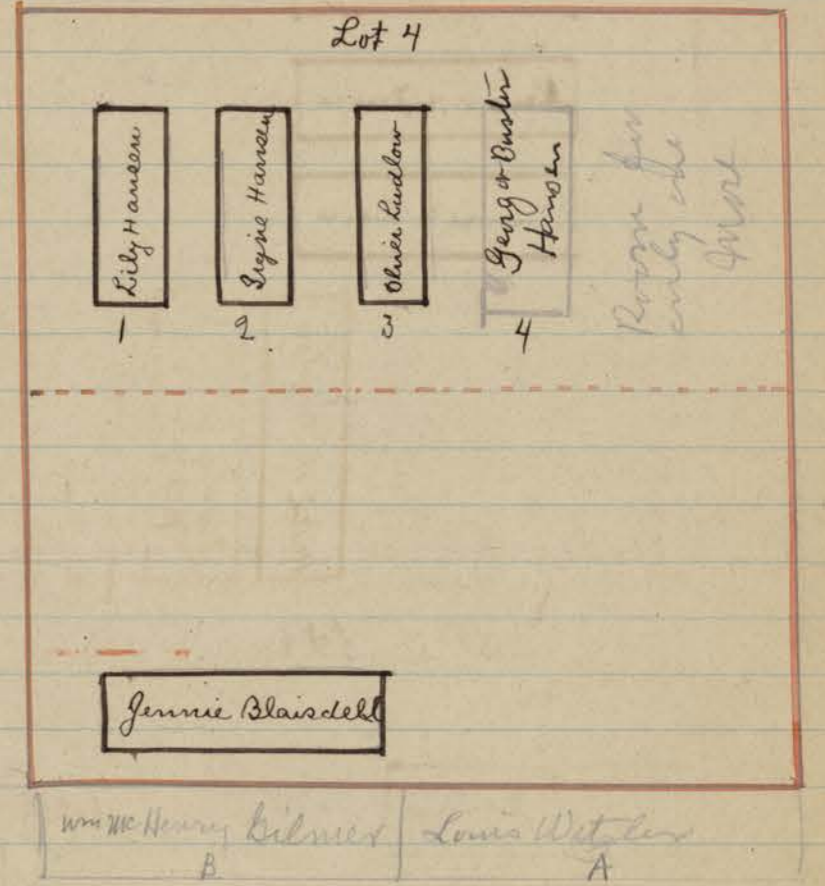 Lot 4
Lily Hansen
1
Hansen
2
Olivia Ludlow
3
Georg or Buster
Hansen
4
Room for
only one
more
Jennie Blaisdell
Wm McHenry Gilmer
B
Louis Wetzler
A